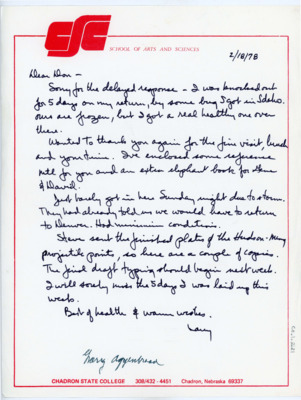 CSC
SCHOOL OF ARTS AND SCIENCES
2/18/78
Dear Don -
Sorry for the delayed response - I was knocked out
for 5 days on my return, by some bug I got in Idaho.
ours are frozen, but I got a real healthy one over
there.
Wanted to thank you again for the fine visit, lunch
and your time. I've enclosed some reference
mtl for you and an extra elephant book for
& David.
Just barely got in here Sunday night due to storm.
They had already told us we would have to return
to Denver. Had minimum conditions.
Steve sent the finished plate of the Hudson-Meng
projectile points, so here are a couple of copies.
The final draft typing should begin next week.
I will sorely miss the 5 days I was laid up this
week.
Best of health & warm wishes.
Larry
Larry Agenbroad
CHADRON STATE COLLEGE 308/432 - 4451 Chadron, Nebraska 69337